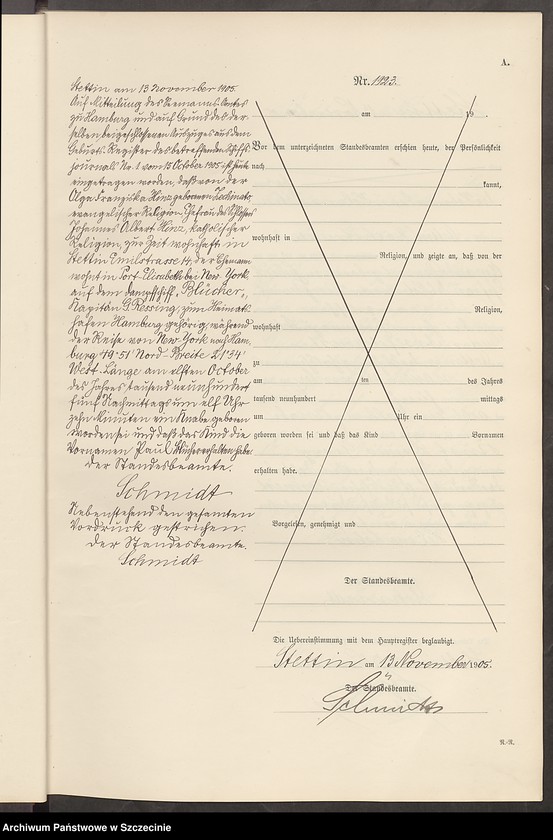 A.
Nr. 1923.
Stettin am 13 November 1905.
Auf Mitteilung des Seemanns Amtes
zu Hamburg und auf Grund des der
selben beigeschlossenen Auszuges aus dem
Geburts-Register des betreffenden Schiffs
journals Nr. 1 vom 15 October 1905 ist heute
eingetragen worden, daß von der
Olga Franziska Hinz geborenen
evangelischer Religion, Ehefrau des Schlossers
Johannes Albert Hinz, katholischer
Religion, zur Zeit wohnhaft in
Stettin Emilstrasse 14, der Ehemann
wohnt in Port Elisabeth bei New York
auf dem Dampfschiff „Blücher„
Kapitän G. Ressing, zum Heimats
hafen Hamburg gehörig, während
der Reise von New York nach Ham
burg 49°51' Nord-Breite 2°134'
West-Länge am elften October
des Jahres tausend neunhundert
fünf Nachmittags um elf Uhr
zehn Minuten ein Knabe geboren
worden sei und daß das Kind die
Vornamen Paul Blücher erhalten habe.
Der Standesbeamte.
Schmidt
Nebenstehend den gesamten
Vordruck gestrichen.
Der Standesbeamte.
Schmidt
am 19 .
Vor dem unterzeichneten Standesbeamten erschien heute, der Persönlichkeit
nach
kannt,
wohnhaft in
Religion, und zeigte an, daß von der
Religion,
wohnhaft
zu
am ten des Jahres
tausend neunhundert mittags
um Uhr ein
geboren worden sei und daß das Kind Vornamen
erhalten habe.
Vorgelesen, genehmigt und
Der Standesbeamte.
Die Uebereinstimmung mit dem Hauptregister beglaubigt.
Stettin am 13 November 1905.
Der Standesbeamte.
Schmidt
R.-R.
Archiwum Państwowe w Szczecinie